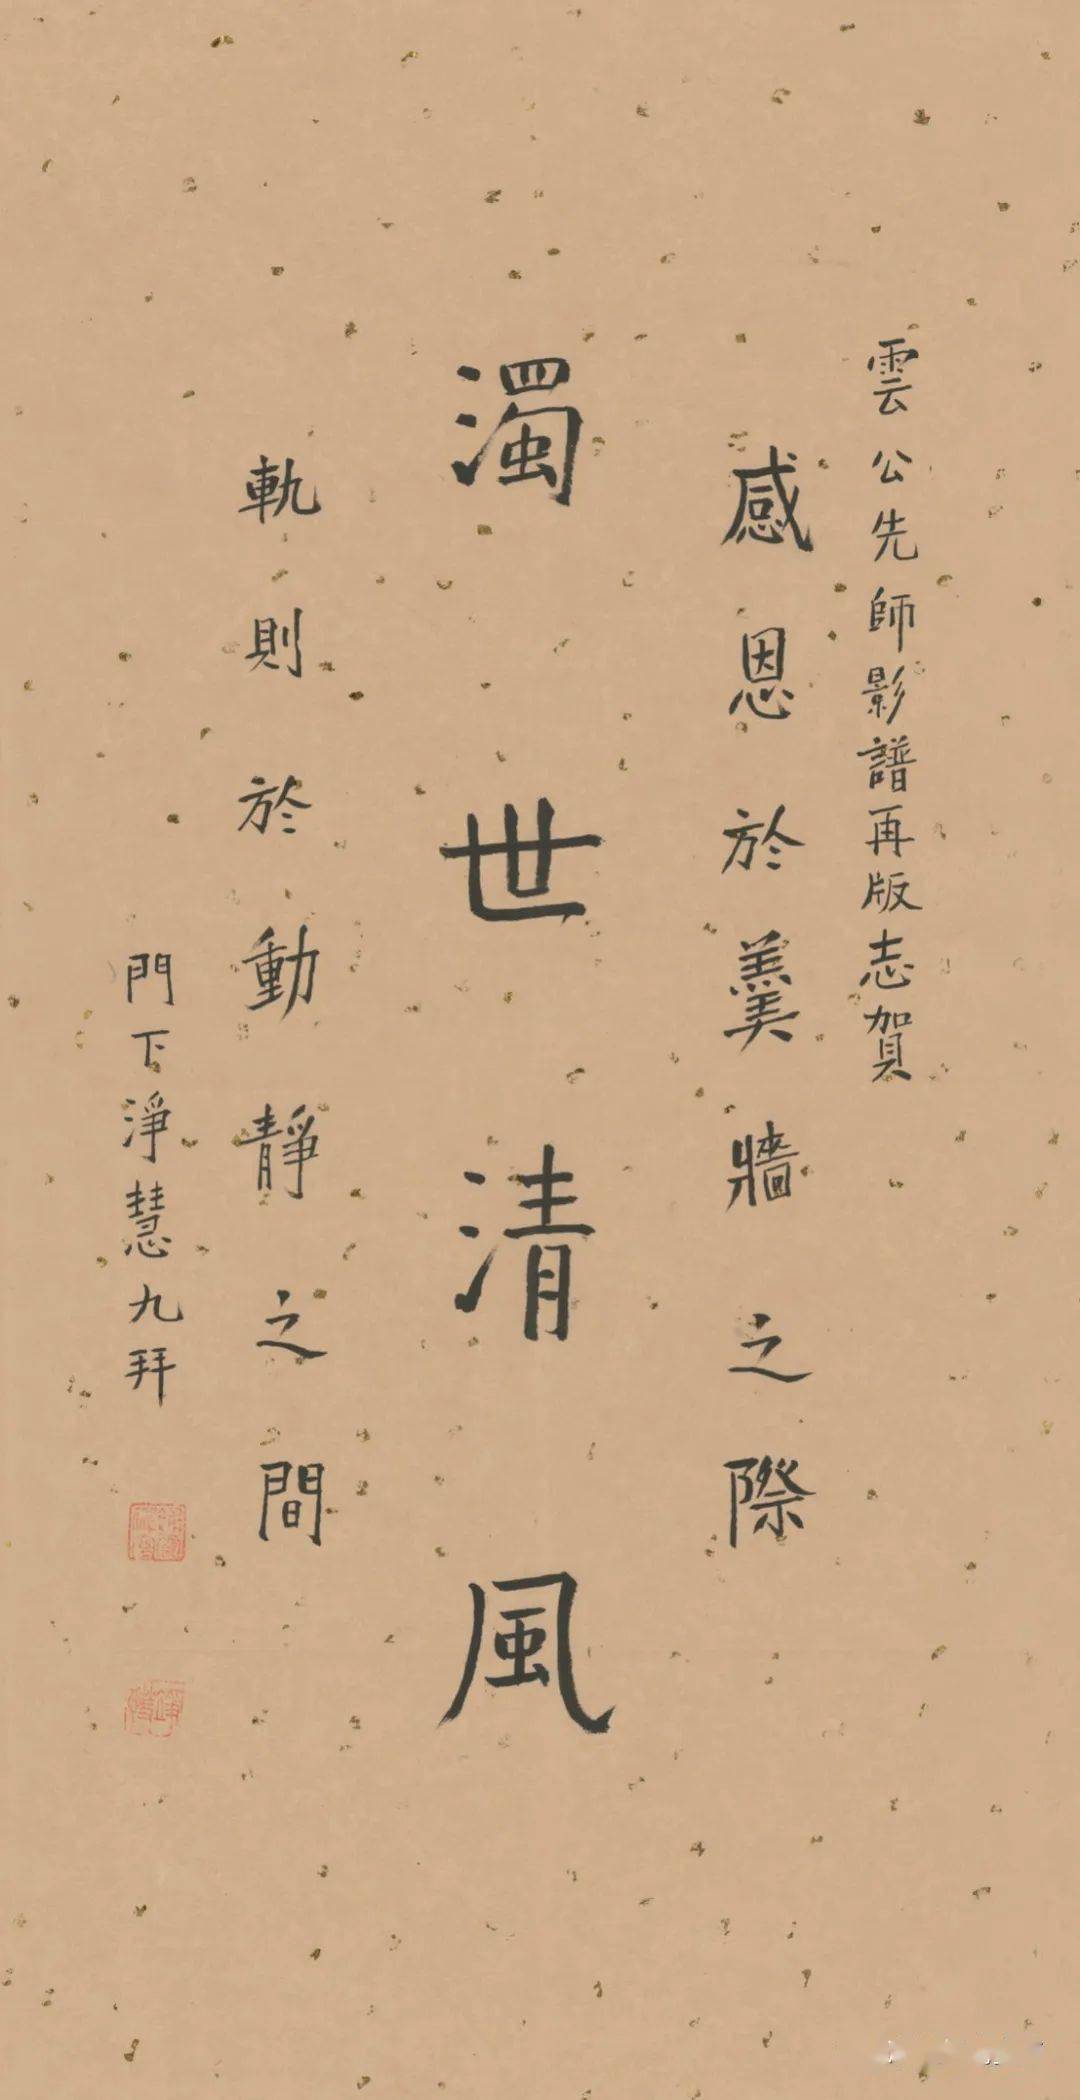 雲公先師影譜再版志賀
感恩於羹牆之際
濁世清風
軌則於動靜之間
門下淨慧九拜